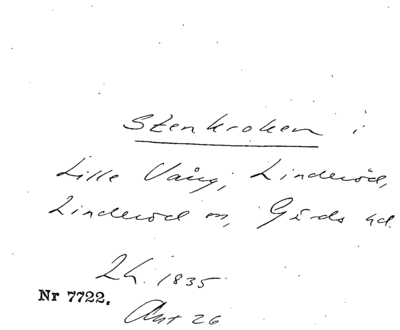 Stenkroken i
Lille Vång, Linderöd,
Linderöd sn, Gärds hd.
Lh. 1835
Nr 7722.
Akt 26